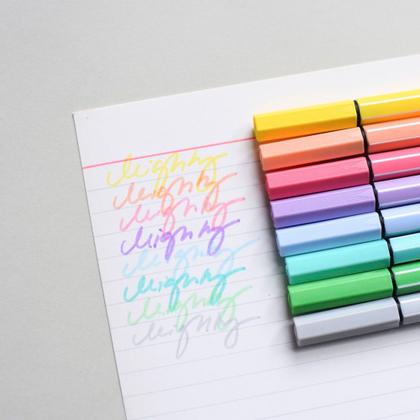 Mighty
Mighty
Mighty
Mighty
Mighty
Mighty
Mighty
Mighty